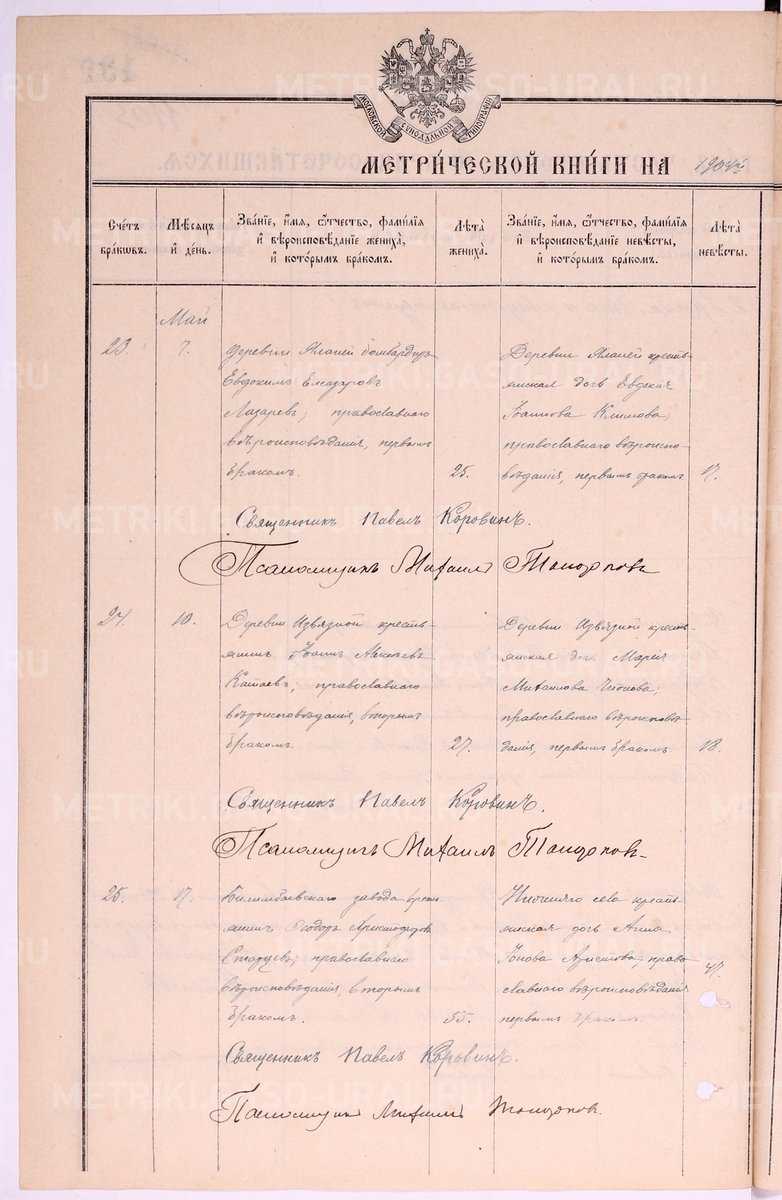 МОСКОВСКОЙ СѴНОДАЛЬНОЙ ТИПОГРАФІИ
МЕТРИ́ЧЕСКОЙ КНИ́ГИ НА 1904й
Сче́тъ бра́кѡвъ.
Мѣ́сяцъ и҆ де́нь.
Зва́нїе, и҆́мя, ѻ҆́тчество, фами́лїя и҆ вѣроисповѣ́данїе жениха̀, и҆ кото́рымъ бра́комъ.
Лѣ́та жениха̀.
Зва́нїе, и҆́мя, ѻ҆́тчество, фами́лїя и҆ вѣроисповѣ́данїе невѣ́сты, и҆ кото́рымъ бра́комъ.
Лѣ́та невѣ́сты.
Май
23. 7.
деревни бомбардиръ
Евдокимъ Елеазаровъ
Лазаревъ; православнаго
вѣроисповѣданія, первымъ
бракомъ. 25.
Деревни кресть-
янская дочь Евдокія
Іоаннова Климова;
православнаго вѣроиспо-
вѣданія, первымъ бракомъ 17.
Священникъ Павелъ Коровинъ.
Псаломщикъ Михаилъ Топорковъ
24. 10.
Деревни Извязной кресть-
янинъ Іоаннъ Алексѣевъ
Катаевъ; православнаго
вѣроисповѣданія, вторымъ
бракомъ. 27.
Деревни Извязной кресть-
янская дочь Марія
Михаилова
православнаго вѣроисповѣ-
данія, первымъ бракомъ 18.
Священникъ Павелъ Коровинъ.
Псаломщикъ Михаилъ Топорковъ
25. 17.
Билимбаевскаго завода кресть-
янинъ Ѳеодоръ
Старцевъ; православнаго
вѣроисповѣданія, вторымъ
бракомъ. 55.
Нижняго села кресть-
янская дочь Анна
Іонова Анисимова, право-
славнаго вѣроисповѣданія
первымъ бракомъ. 47.
Священникъ Павелъ Коровинъ.
Псаломщикъ Михаилъ Топорковъ.
METRIKI.GASO-URAL.RU